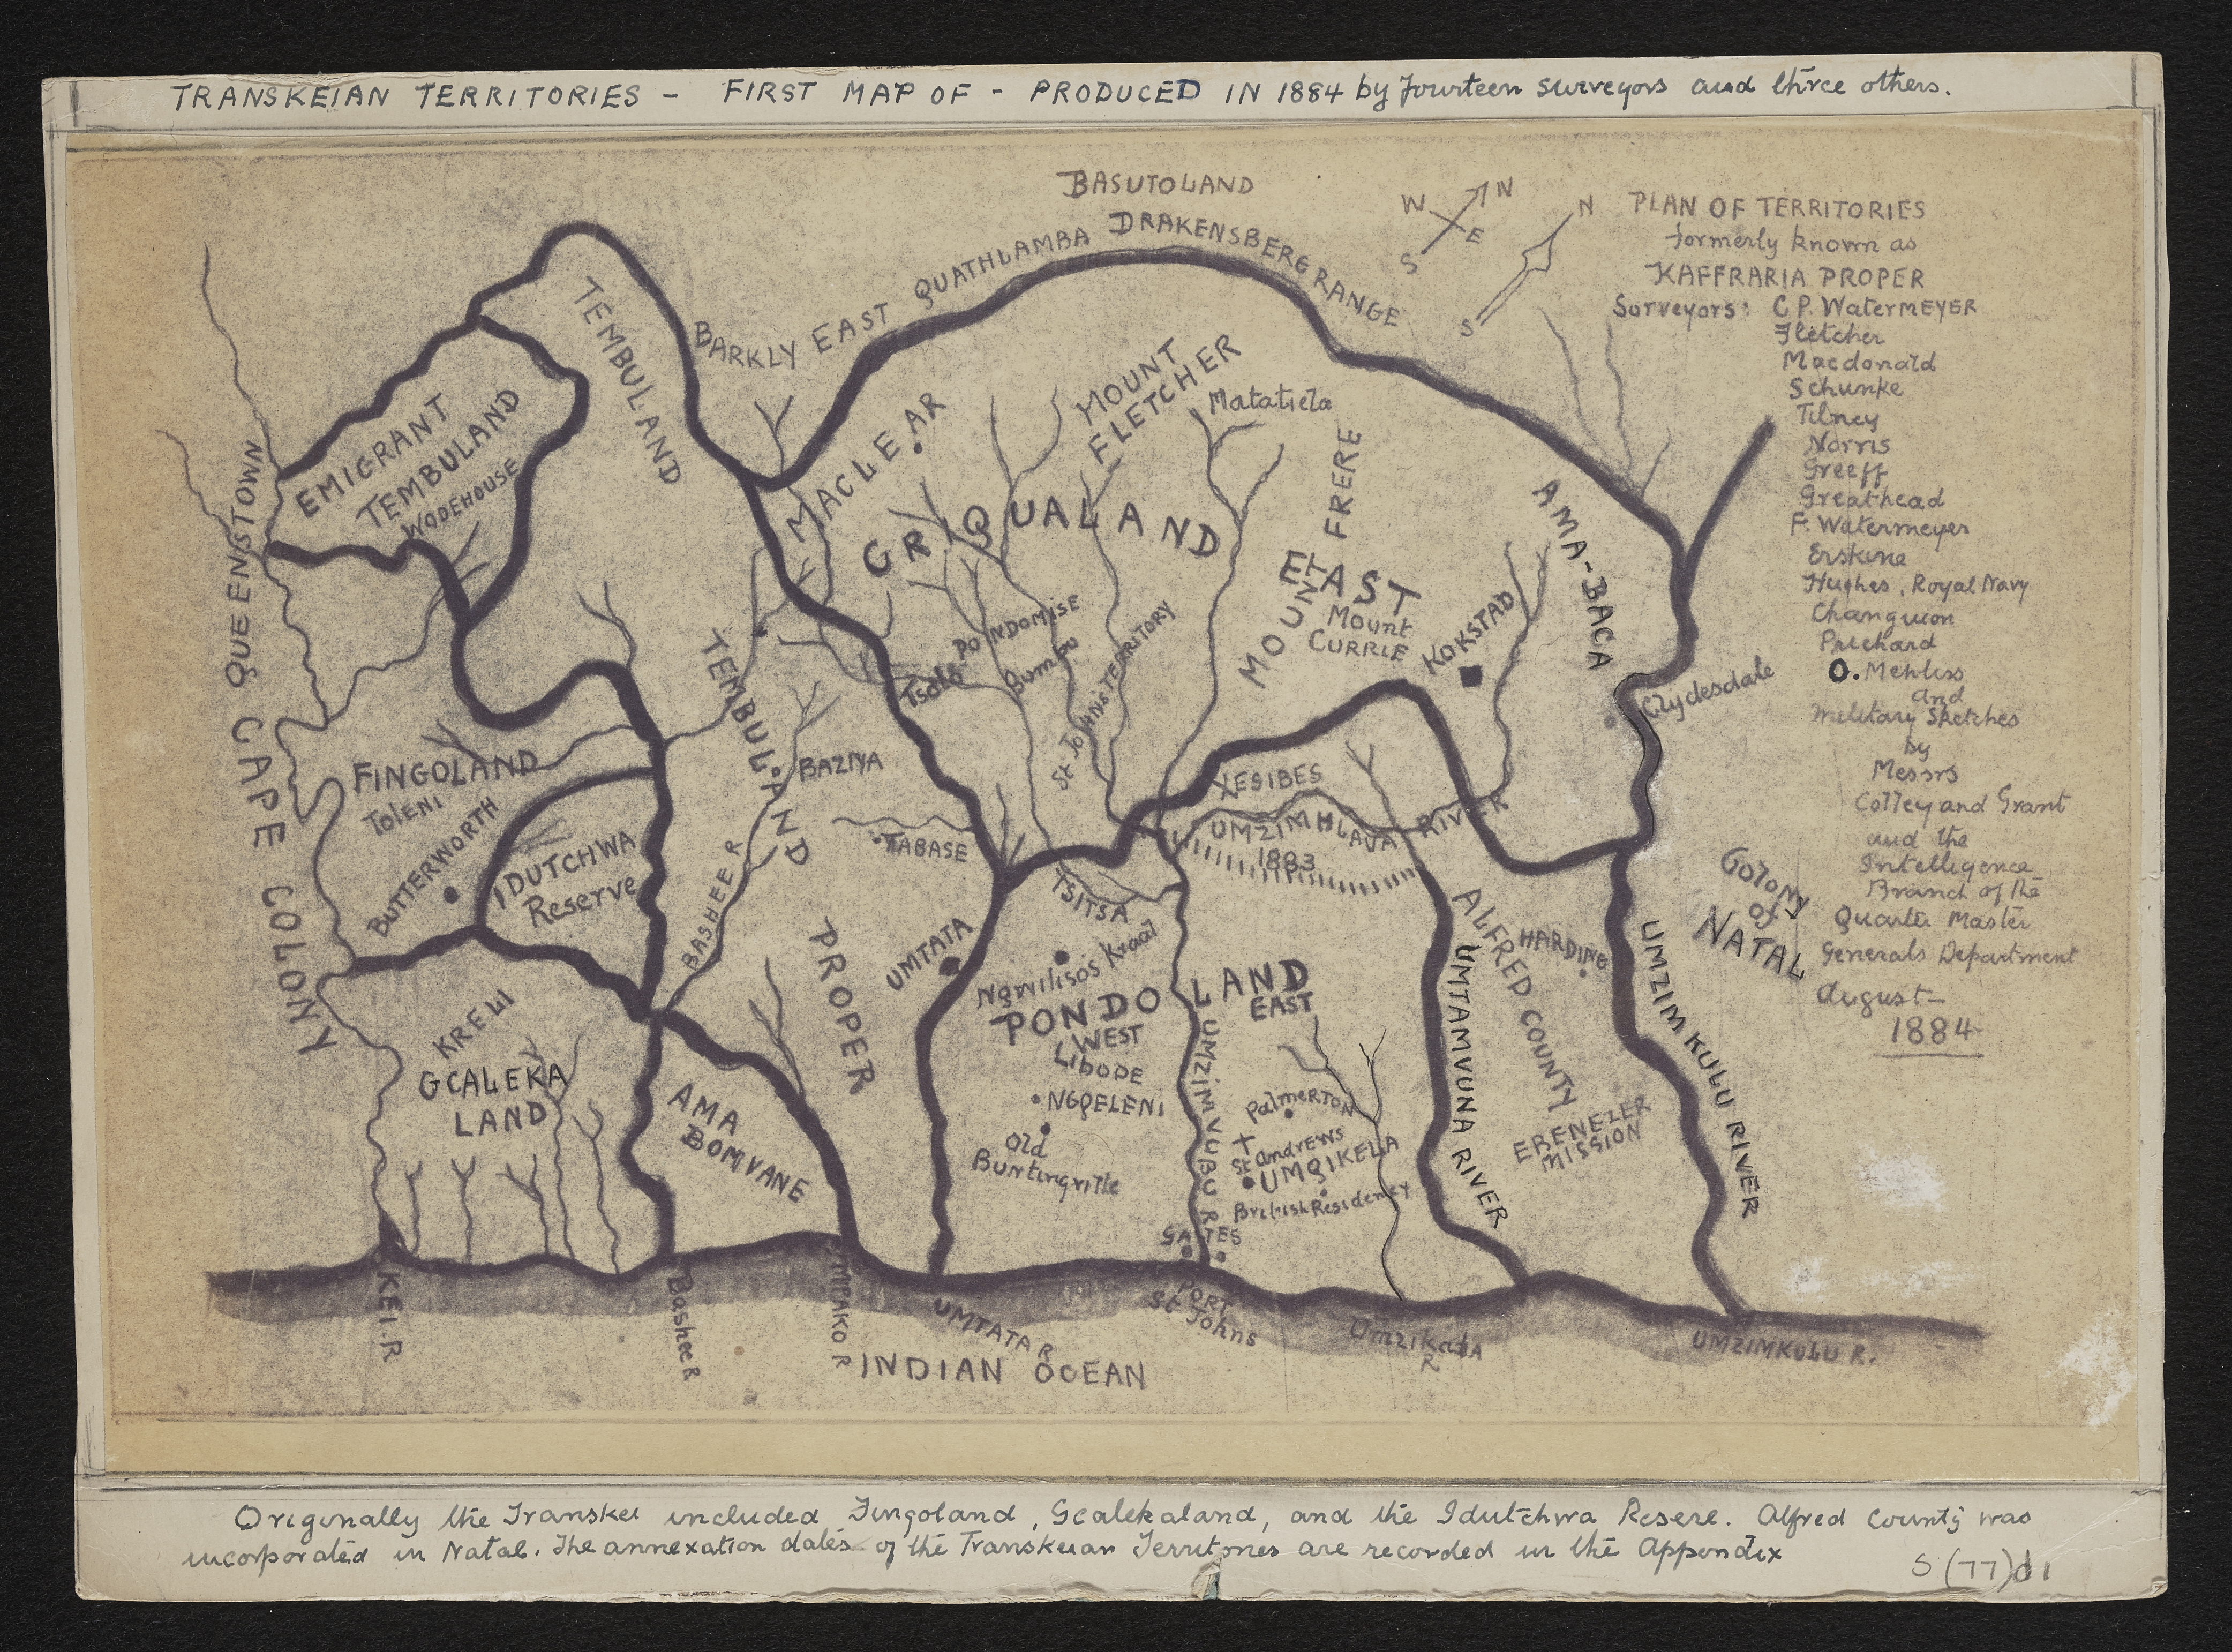 TRANSKEIAN TERRITORIES - FIRST MAP OF - PRODUCED IN 1884 by fourteen surveyors and three others.
BASUTOLAND
QUATHLAMBA DRAKENSBERG RANGE
BARKLY EAST
W N
S E
N
S
PLAN OF TERRITORIES
formerly known as
KAFFRARIA PROPER
Surveyors: C P. WaterMEYER
Fletcher
Macdonald
Schunke
Tilney
Norris
Greeff
Greathead
F. Watermeyer
Erskine
Hughes, Royal Navy
Changuion
Prichard
O. Mehliss
and
Military Sketches
by
Messrs
Colley and Grant
and the
Intelligence
Branch of the
Quarter Master
Generals Department
August-
1884
TEMBULAND
EMIGRANT
TEMBULAND
WODEHOUSE
QUEENSTOWN
CAPE COLONY
MACLEAR
MOUNT
FLETCHER
Matatiela
GRIQUALAND
EAST
MOUNT FRERE
Mount
CURRIE
KOKSTAD
AMA-BACA
Clydesdale
PONDOMISE
Tsolo
Qumbu
St JOHNS TERRITORY
TEMBULAND
PROPER
BAZIYA
TABASE
FINGOLAND
TOLENI
BUTTERWORTH
IDUTCHWA
Reserve
BASHEE R
XESIBES
UMZIMHLAVA RIVER
1883
TSITSA
UMTATA
Nqwilisos Kraal
PONDO LAND
WEST
EAST
LIBODE
NGQELENI
Old
Buntingville
UMZIMVUBU R
Palmerton
St Andrews
UMQIKELA
British Residency
GATES
PORT
St Johns
ALFRED COUNTY
HARDING
UMTAMVUNA RIVER
EBENEZER
MISSION
UMZIMKULU RIVER
COLONY
OF
NATAL
KRELI
GCALEKA
LAND
AMA
BOMVANE
KEI.R
Bashee R
MPAKO R
UMTATA R
INDIAN OCEAN
R
UMZIMKULU R.
Originally the Transkei included Fingoland, Gcalekaland, and the Idutchwa Resere. Alfred County was
incorporated in Natal. The annexation dates of the Transkeian Territories are recorded in the Appendix
S (77)d1